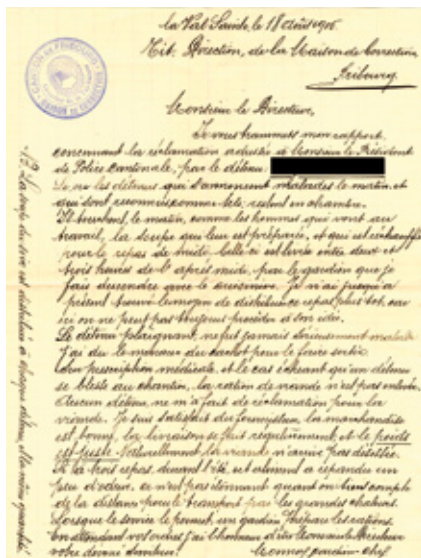 CANTON DE FRIBOURG
la Val Sainte, le 18 août 19
Tit. Direction, de la Maison de Correction
Fribourg
Monsieur le Directeur,
Je vous transmets mon rapport,
concernant la réclamation adressée à Monsieur le Président
de Police cantonale, par le détenu
les détenus qui s'annoncent malades le matin, et
qui sont reconnus comme tels, restent en chambre.
Ils touchent, le matin, comme les hommes qui vont au
travail, la soupe qui leur est préparée, et qui est réchauffée
pour le repas de midi. Celle-ci est levée entre deux et
trois heures de l'après midi, par le gardien que je
fais descendre avec le Je n'ai jusqu'à
présent trouvé le moyen de distribuer ce repas plus tôt, car
ici on ne peut pas toujours procéder à son idée.
Le détenu plaignant, ne fut jamais sérieusement malade
J'ai du le menacer du cachot pour le faire sortir.
Sur prescription médicale, et le cas échéant qu'un détenu
se blesse au chantier, la ration de viande n'est pas enlevée.
Aucun détenu, ne m'a fait de réclamation pour la
viande. Je suis satisfait du fournisseur, la marchandise
est bonne, la livraison se fait régulièrement, et le poids
est juste. Naturellement la viande n'arrive pas
A la trois repas, durant l'été, et a répandu un
peu d'odeur, ce n'est pas étonnant quand on tient compte
de la distance pour le transport par les grandes chaleurs.
Lorsque le service le permet, un gardien prépare les rations.
En attendant vos ordres j'ai l'honneur d'être Monsieur le Directeur
votre dévoué serviteur.
gardien-chef
La soupe du soir est distribuée à chaque détenu, et la même quantité.